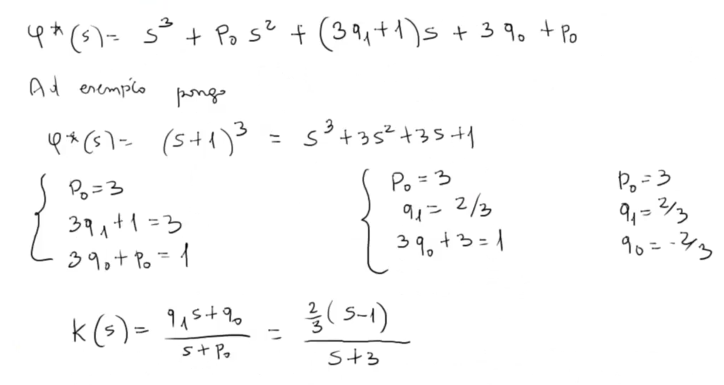 φ*(s) = s³ + p₀ s² + (3q₁+1)s + 3q₀ + p₀
Ad esempio pongo
φ*(s) = (s+1)³ = s³+3s²+3s+1
{ p₀ = 3 { p₀ = 3 p₀ = 3
3q₁+1 = 3 q₁ = 2/3 q₁ = 2/3
3q₀+p₀ = 1 3q₀+3 = 1 q₀ = -2/3
K(s) = (q₁s+q₀)/(s+p₀) = (2/3 (s-1))/(s+3)